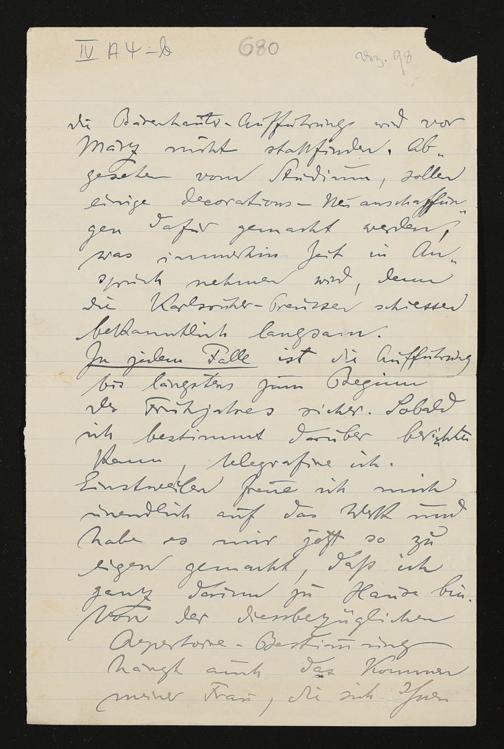 IV A 4 - b 680 vor. 98
die Bärenhäuter-Aufführung wird vor
März nicht stattfinden. Ab„
gesehen vom Studium, sollen
einige decorations - Neuanschaffun„
gen dafür gemacht werden,
was immerhin Zeit in An„
spruch nehmen wird, denn
die Karlsruher-Preussen schiessen
bekanntlich langsam.
In jedem Falle ist die Aufführung
bis längstens zum Beginn
des Frühjahres sicher. Sobald
ich bestimmt darüber berichten
kann, telegrafire ich.
Einstweilen freue ich mich
unendlich auf das Werk und
habe es mir jetzt so zu
eigen gemacht, daß ich
ganz darin zu Hause bin.
Von der diessbezüglichen
Repertoire - Bestimmung
hängt auch das Kommen
meiner Frau, die sich Ihnen